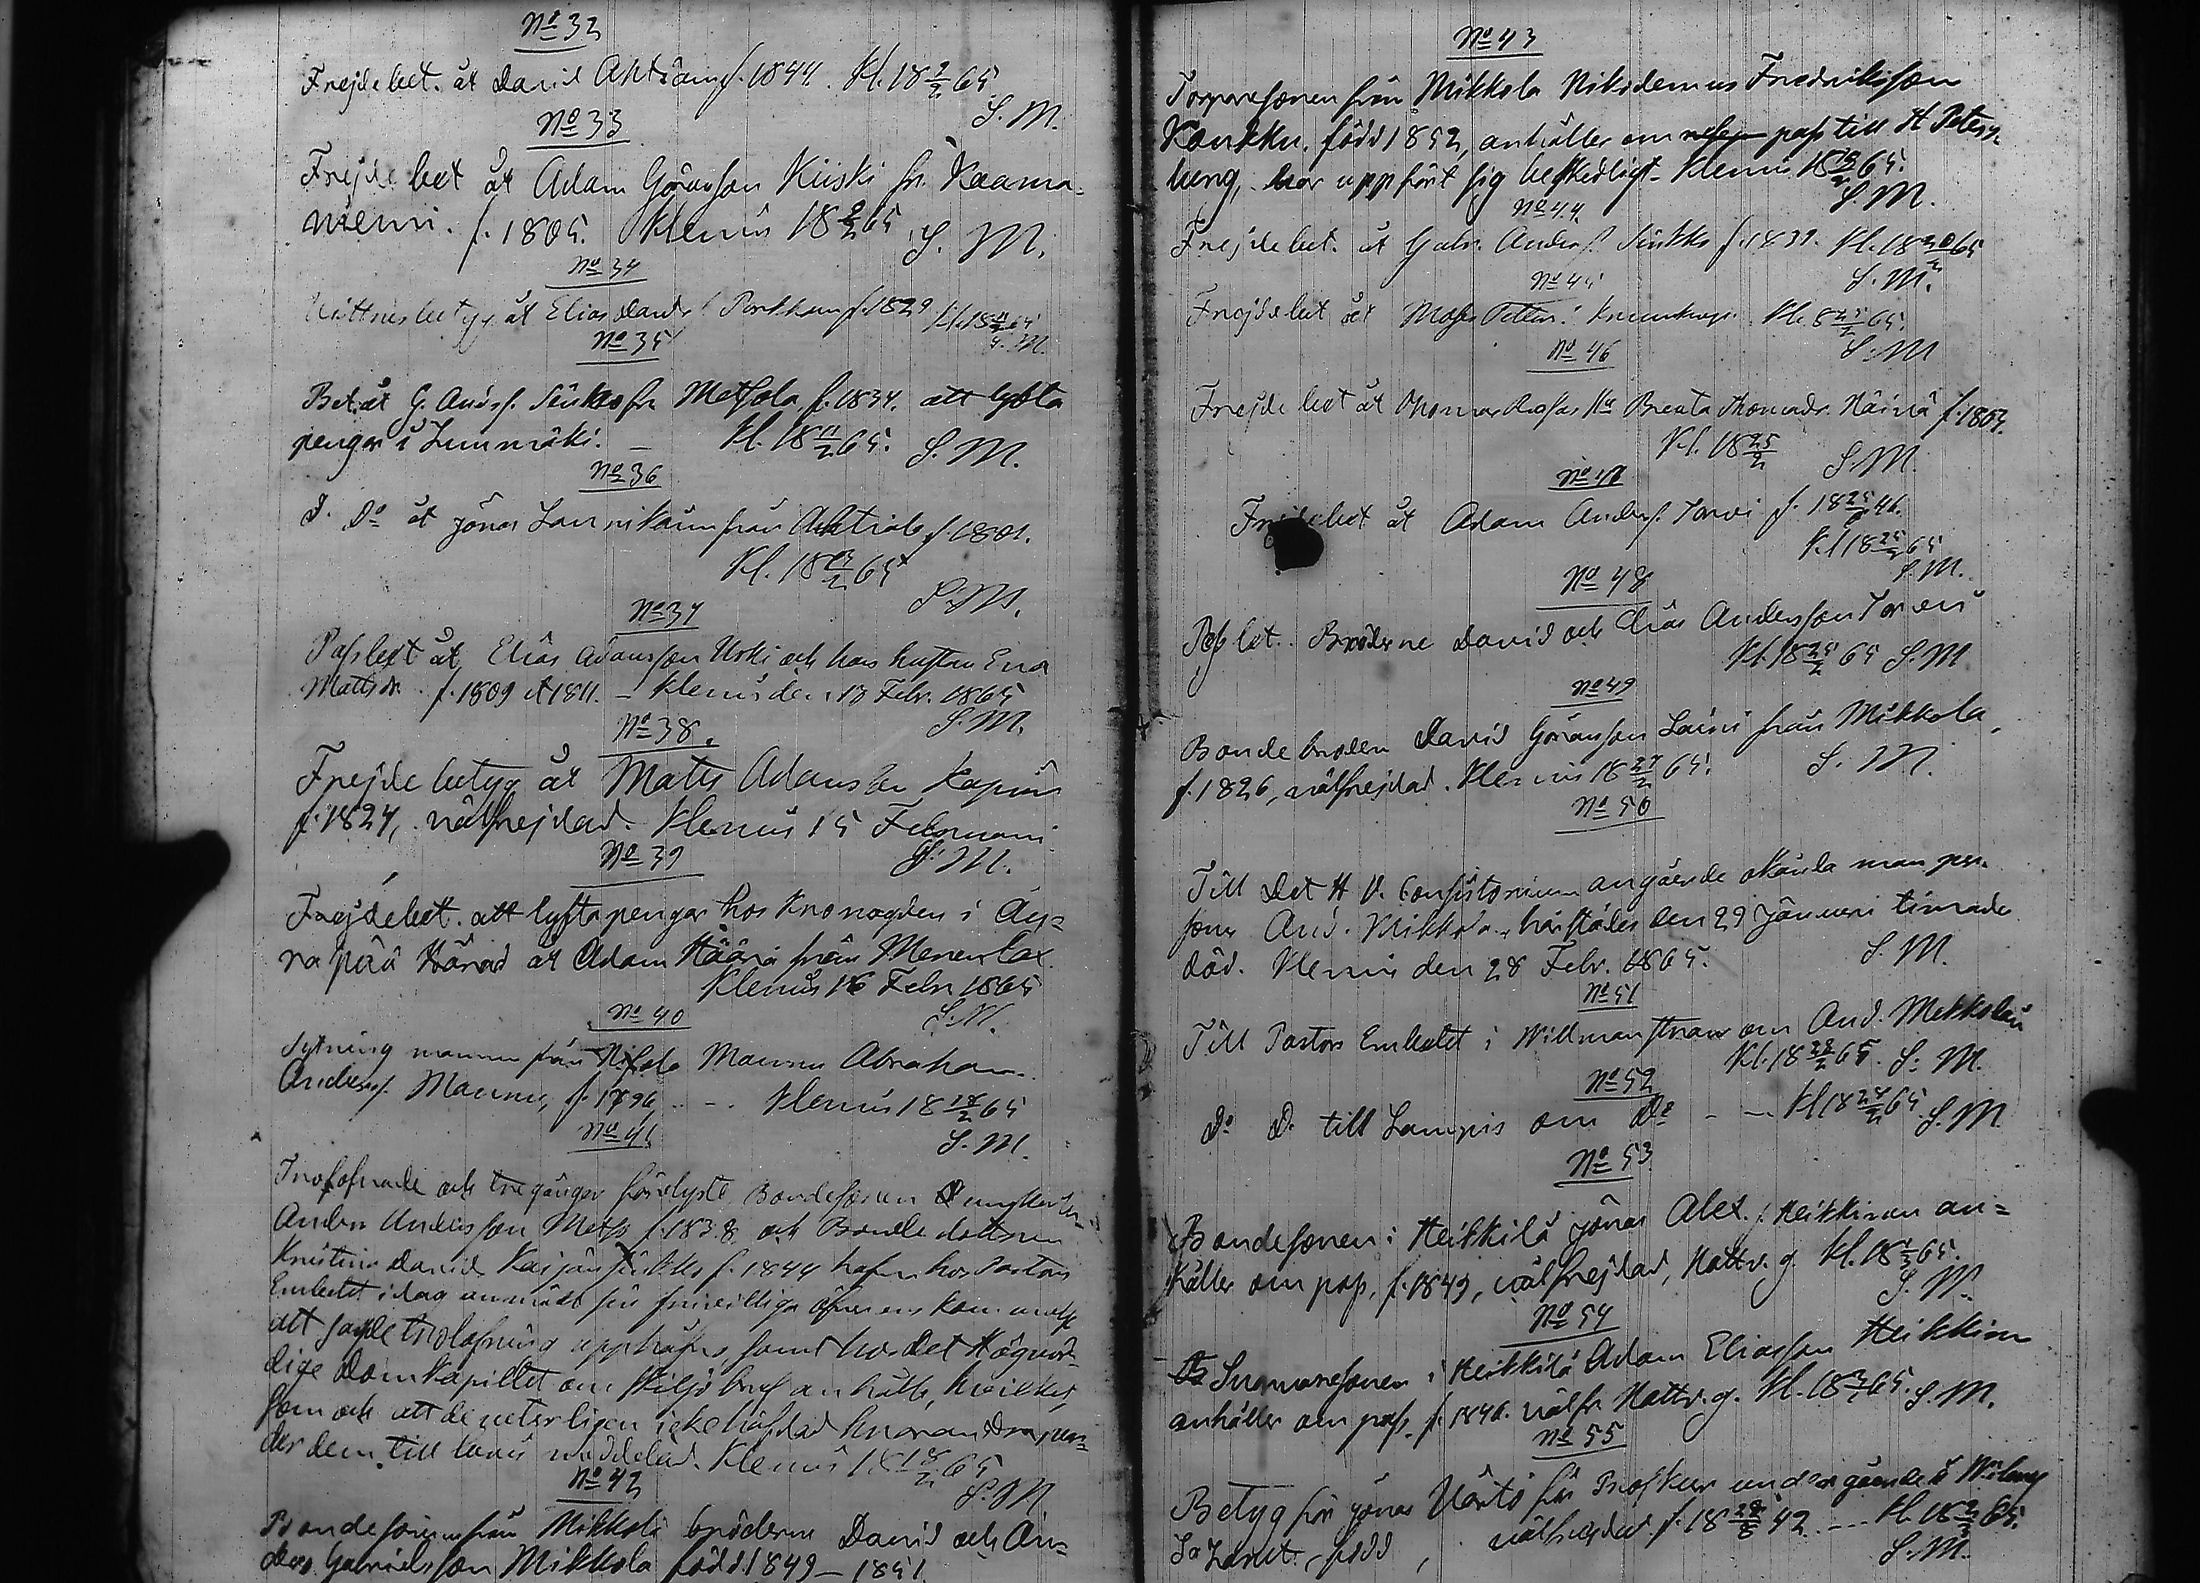 No 32
Frejdebet. åt David Ahtiain f. 1844. Kl. 18 9/2 65
S. M.
No 33
Frejdebet åt Adam Göransson Kiiski fr. Kaama-
niemi. f. 1805. Klemis 18 9/2 65 S. M.
No 34
åt Elias f. 1829 Kl. 18 65
S. M.
No 35
Bet. åt G. Andsf. Sinkko fr Metsola f. 1834. att lyfta
pengar i Lummäki. Kl. 18 11/2 65. S. M.
No 36
D. Do åt Jonas Lannikain från Ahtiala f. 1801.
Kl. 18 13/2 65
S. M.
No 37
Passbet åt Elias Adamsson Urki och hans hustru Eva
Mattsdr. f. 1809 et 1811. – Klemis den 13 Febr. 1865
S. M.
No 38.
Frejdebetyg åt Matts Adamsson Kapiain
f. 1824, välfrejdad. Klemis 15 Februari
S. M.
No 39
Frejdebet. att lyfta pengar hos Kronofogden i Äy=
räpää Härad åt Adam Hääriä från Merenlax.
Klemis 16 Febr 1865
S. M.
No 40
Sytning mannen från Mannu Abraham
Andersf. Mannu, f. 1796, – – Klemis 18 18/2 65
S. M.
No 41
Trolofvade och tre gånger förelyste Bondesonen
Anders Andersson f. 1838 och Bondedottren
Kristina David f. 1844 hafva hos Pastors
Embetet i dag anmält sin frivilliga öfverenskommelse
att sagde trolofning upphäfves, samt hos det Högvör-
dige Domkapitlet om skiljobref anhålla, hvilket,
som och att de veterligen icke häfdad hvarandra, var-
der dem till bevis meddelad. Klemis 18 18/2 65
S. M
No 42
Bondesönerna från Mikkola bröderna David och An=
ders Gabrielsson Mikkola född 1849 – 1851
No 43
Torparesonen från Mikkola Nikodemus Fredriksson
Kaukku, född 1852, anhåller om pass till St Peters-
burg, har uppfört sig beskedligt. Klemis 18 65.
S. M.
No 44.
Frejdebet. åt Gabr. Andersf Sinkko f. 1839. Kl. 18 20/2 65
S. M.
No 45
Frejdebet åt Moses Petter Kl. 18 65.
S. M
No 46
Frejdebet åt Thomas Hu Breata Thomasdr. Häiriä f. 1809.
Kl. 18 25/2
S. M.
No 47
Frejdebet åt Adam Andersf. Torvi f. 18 46.
Kl 18 25/2 65
S. M.
No 48
Passbet. Bröderne David och Elias Andersson Torvi
Kl. 18 25/2 65 S. M
No 49
Bondebroden David Göransson Lairi från Mikkola,
f. 1826, välfrejdad. Klemis 18 27/2 65. S. M.
No 50
Till Det H. V. Consistorium angående okända manper-
sonen And. Mikkola, härstädes den 29 Januari timade
död. Klemis den 28 Febr. 1865.
S. M.
No 51
Till Pastors Embetet i Willmanstrand om And. Mikkola
Kl. 18 28/2 65. S. M.
No 52
Do D. till Lampis om Do – – Kl 18 28/2 65. S. M
No 53
Bondesonen i Heikkilä Jonas Alex. f. Heikkinen an=
håller om pass, f. 1849, välfrejdad, Nattv. g. Kl. 18 1/3 65.
S. M.
No 54
Inhysesonen i Heikkilä Adam Eliasson Heikkin
anhåller om pass. f. 1846. välfr. Nattv. g. Kl. 18 3/3 65. S. M.
No 55
Betyg för Jonas Värtö för undergående i Wiborgs
Lazarett, född, välfrejdad f. 18 28/8 42 –– Kl. 18 65.
S. M.